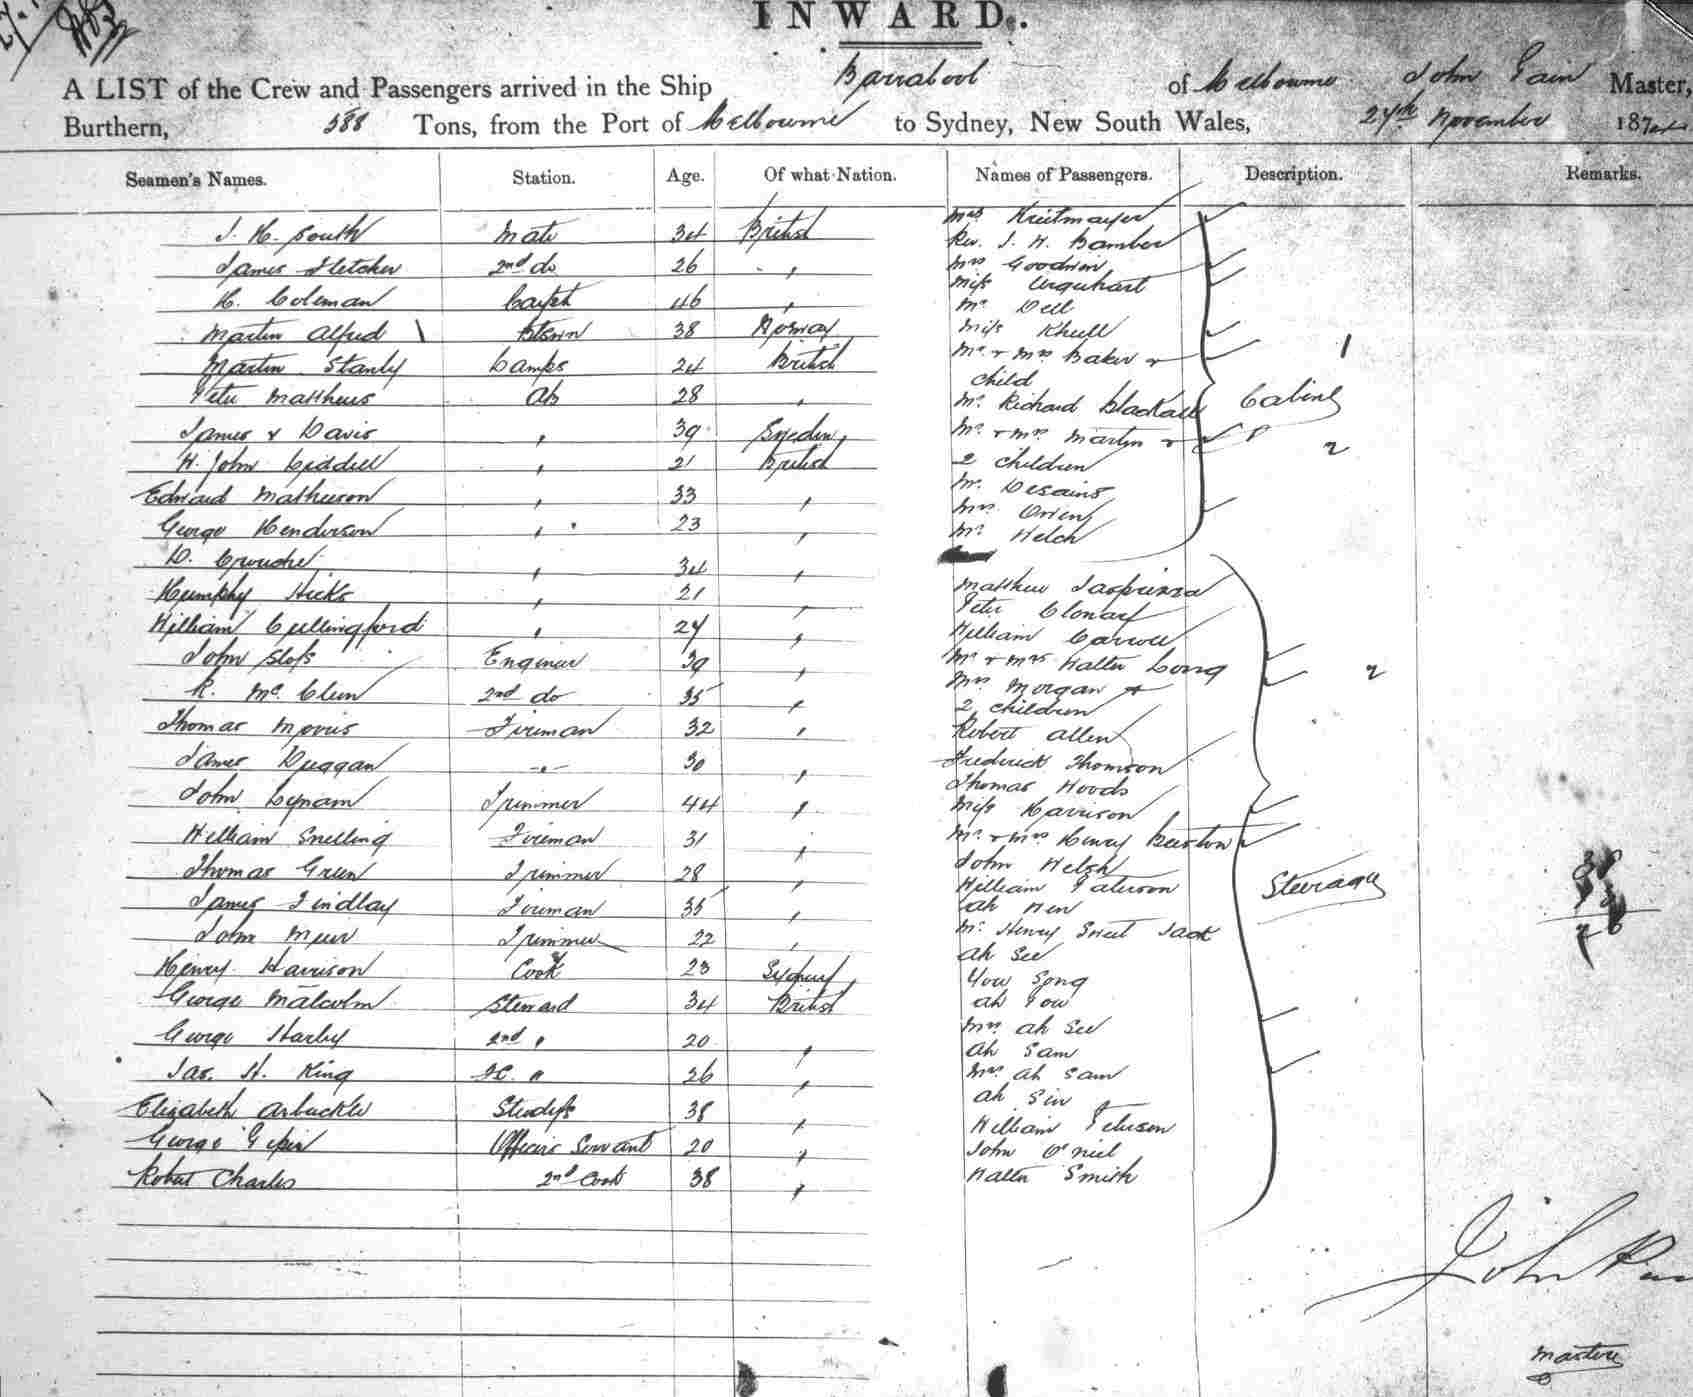 INWARD.
A LIST of the Crew and Passengers arrived in the Ship Barrabool of Melbourne John Pain Master,
Burthern, 588 Tons, from the Port of Melbourne to Sydney, New South Wales, 24th November 187
Seamen's Names. Station. Age. Of what Nation. Names of Passengers. Description. Remarks.
J. H. South Mate 34 British
James Fletcher 2nd do 26 "
H. Coleman Carpt 46 "
Martin Alfred Btswn 38 Norway
Martin Stanly Lamps 24 British
Peter Matthews Ab 28 "
James Davis " 39 Sweden
H. John Liddell " 21 British
Edward Matheson " 33 "
George Henderson " 23 "
D. " 34 "
Humphy Hicks " 21 "
William Cullingford " 24 "
John Sloss Engineer 39 "
R. Mc. 2nd do 35 "
Thomas Morris Fireman 32 "
James Duggan -"- 30 "
John Lynam Trimmer 44 "
William Snelling Fireman 31 "
Thomas Green Trimmer 28 "
James Findlay Fireman 35 "
John Muir Trimmer 22 "
Henry Harrison Cook 23 Sydney
George Malcolm Steward 34 British
George Harby 2nd " 20 "
Jas. H. King " 26 "
Elizabeth Arbuckle Stewdess 38 "
George Officers Servant 20 "
Robert Charles 2nd Cook 38 "
Mrs Kreitmayer
Rev. J. H. Bamber
Mrs Goodwin
Miss Urquhart
Mr Dell
Miss Khull
Mr & Mrs Baker & 1
child
Mr Richard Blackall Cabin
Mr & Mrs Martin & 2
2 children
Mr Desains
Mrs
Mr Welch
Matthew
Peter
William Carroll
Mr & Mrs Walter Long
Mrs Morgan & 2
2 children
Robert Allen
Frederick Thomson
Thomas Woods
Miss Harrison
Mr & Mrs Henry Burton
John Welsh
William Paterson Steerage
Ah Hen
Mr Henry Sweet Jack
Ah See
You Song
Ah You
Mrs Ah See
Ah Sam
Mrs Ah Sam
Ah Sin
William Peterson
John O'niel
Walter Smith
38
John Pain
Master